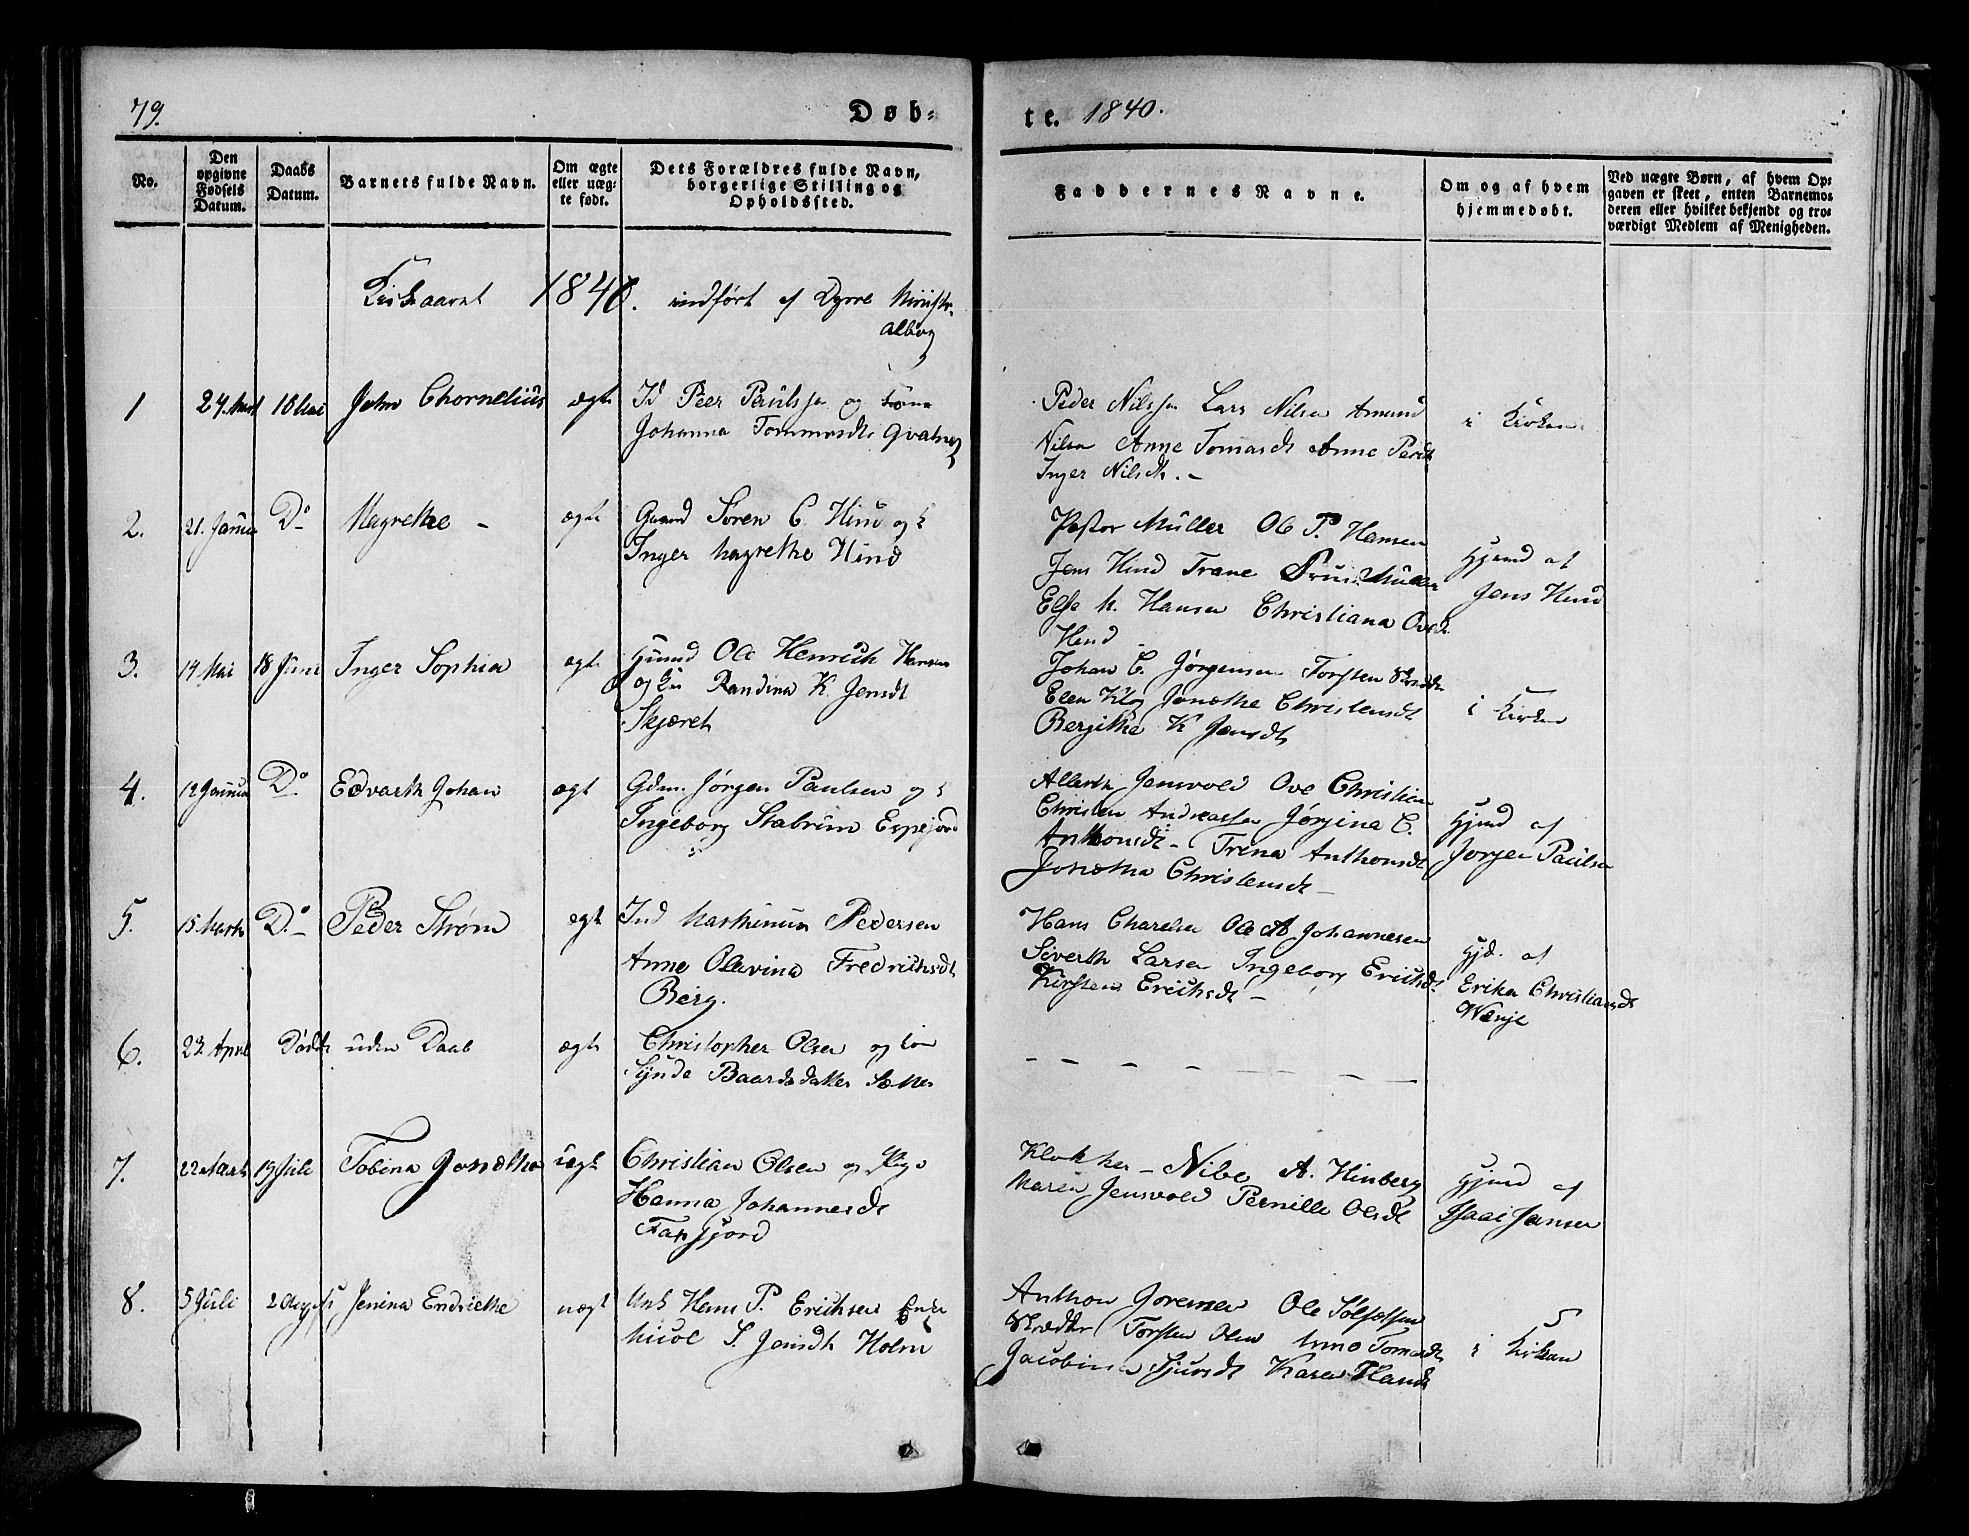 79.
Døb-
te. 1840.
No.
Den opgivne Fødsels Datum.
Daabs Datum.
Barnets fulde Navn.
Om ægte eller uæg-te født.
Dets Forældres fulde Navn, borgerlige Stilling og Opholdssted.
Faddernes Navne.
Om og af hvem hjemmedøbt.
Ved uægte Børn, af hvem Op-gaven er skeet, enten Barnemo-deren eller hvilket bekjendt og tro-værdigt Medlem af Menigheden.
Kirkeaaret 1840. indført af
1
John Chornelius
ægte
Peer Paulssen og
Johanna Tommasdt
Peder Nilssen Lars Nilsen Amund
Nilsen Anne Tomasdt Anne
Inger Nilsdt. -
i Kirken
2.
21. Januar
Do
Magrethe -
ægte
Gaard Søren C. Hind og
Inger Magrethe Hind
Pastor Müller Ole P. Hansen
Jens Hind Trane Müller
Else M. Hansen Christiana
Hind
Hjemd af
Jens Hind
3.
14 Mai
18 Juni
Inger Sophia
ægte
Ole Henrich Hansen
og Randina K. Jensdt
Skjæret
Johan C. Jørgensen Torsten
Elen Jonetha Christensdt
Bergithe K Jensdt
i Kirken
4.
12 Januar
Do
Edvarth Johan
ægt
Gdm. Jørgen Paulsen og
Ingeborg Stabrun Espejord
Jensvold Ove Christian
Christen Andreassen Jørgina C.
Anthonsdt - Trena Anthonsdt
Jonetha Christensdt -
Hjemd af
Jørgen Paulsen
5.
15 Marts
Do -
Peder Strøm
ægt
Ind Marthinus Pedersen
Anne Olavina Fredrichsdt
Berg.
Hans Ole A Johannesen
Siverth Larsen Ingeborg Erichsdt
Kirsten Erichsdt -
Hjd. af
Erika Christiansdt
Wænje
6.
23. April
Døde uden Daab
ægte
Christopher Olsen og
Synde Baardsdatter
7.
22 Marts
19 Juli
Tobina Jonetha
uægt
Christian Olsen og Pige
Hanna Johannesdt
Faxfjord
Klokker - Nibe A. Hinberg
Maren Jensvold Pernille Olsdt
Hjemd af
Isaac Jansen
8.
5 Juli
2 August
Jenina Endriethe
uægt
Unk Hans P. Erichsen
Nicol S. Jensdt Holm
Anthon Ole
Torsten Olsen Anne Tomasdt
Jacobina Sjursdt Karen Hansdt
i Kirken